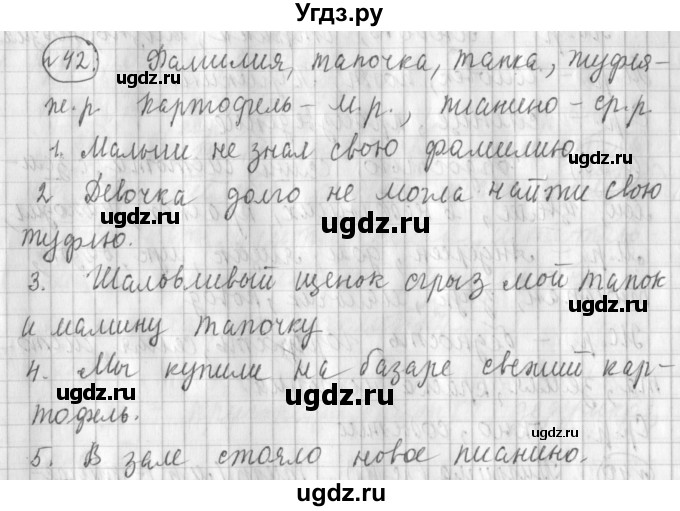 Угдз.ру
№42. Фамилия, тапочка, тапка, туфля –
ж.р. картофель – м.р., пианино – ср.р.
1. Малыш не знал свою фамилию.
ugdz.ru
2 Девочка долго не могла найти свою
ugdz.ru
ugdz.ru
туфлю.
ugdz.ru
3. Шаловливый щенок сгрыз мой тапок
ugdz.ru
и мамину тапочку.
ugdz.ru
4. Мы купили на базаре свежий кар-
ugdz.ru
ugdz.ru
тофель.
ugdz.ru
5. В зале стояло новое пианино.
ugdz.ru